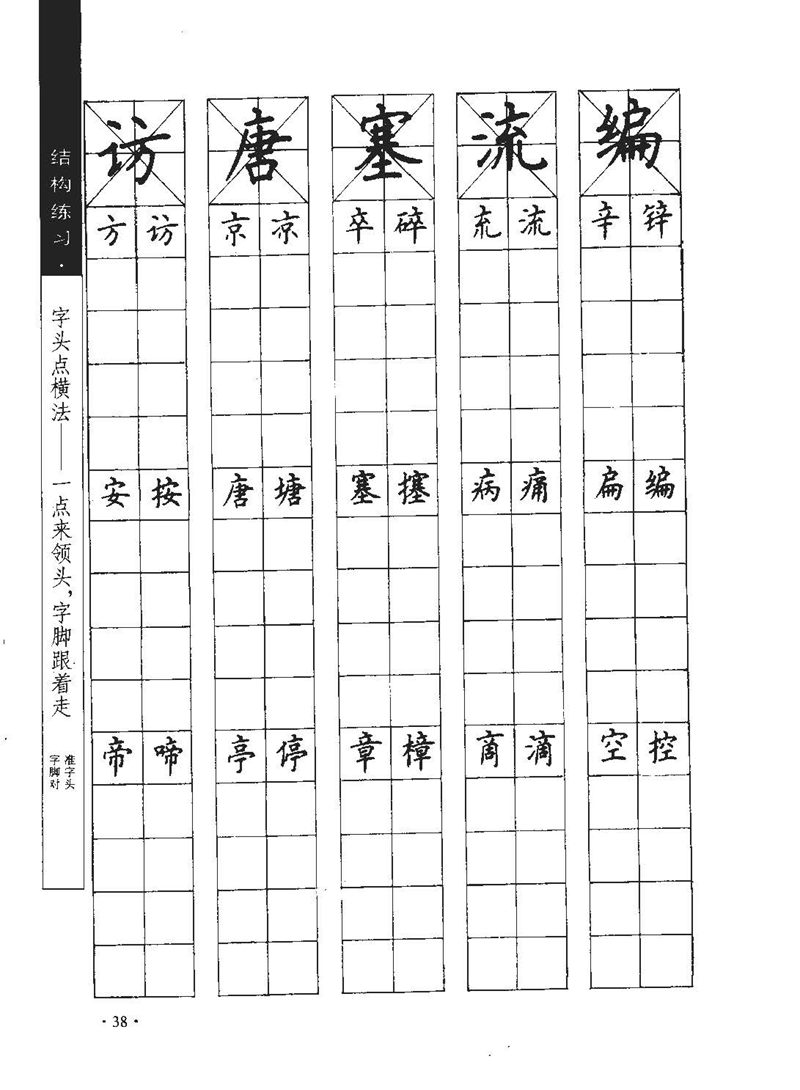 结构练习·
字头点横法——一点来领头，字脚跟着走
字脚对
准字头
访 唐 塞 流 编
方 访 京 凉 卒 碎 㐬 流 辛 锌
安 按 唐 塘 塞 搴 病 痛 扁 编
帝 啼 亭 停 章 樟 啇 滴 空 控
·38·